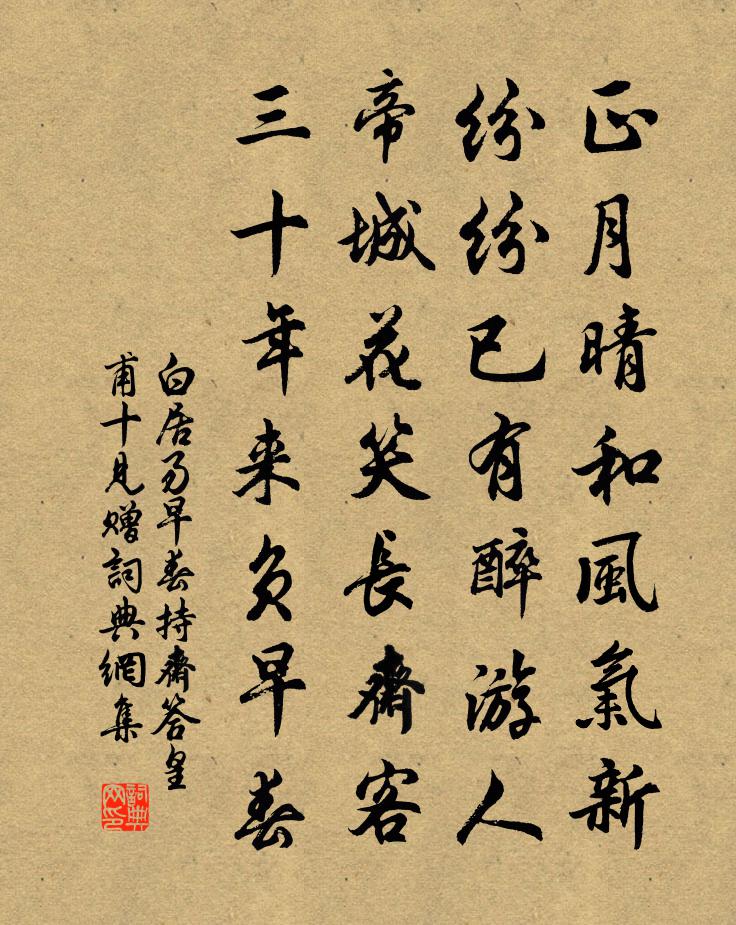 正月晴和風氣新
紛紛已有醉游人
帝城花笑長齋客
三十年来負早春
白居易早春持齋答皇
甫十見贈詞典網集
詞典
网印